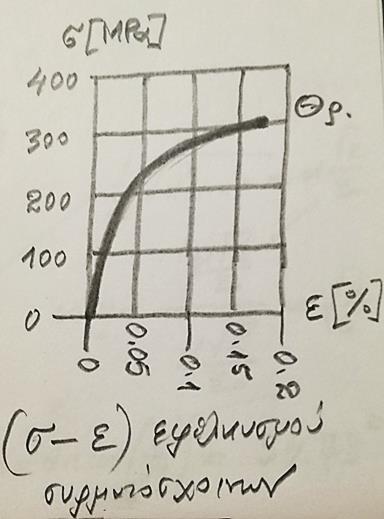 σ [MPa]
400
Θρ.
300
200
100
0
ε [%]
0
0.05
0.1
0.15
0.20
(σ-ε) εφελκυσμού
συρματόσχοινων